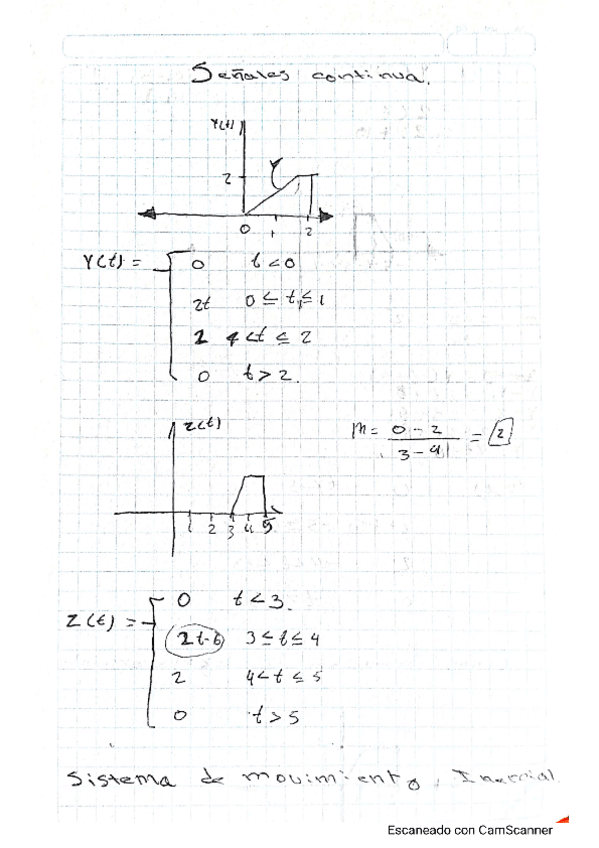 Señales continua.
Y(t)
2
0 1 2
Y(t) =
0 t<0
2t 0 ≤ t ≤ 1
2 1 <t ≤ 2
0 t> 2.
z(t)
m = 0 - 2 / 3 - 4 = 2
1 2 3 4 5
Z(t) =
0 t<3.
2t-6 3 ≤ t ≤ 4
2 4<t ≤ 5
0 t>5
Sistema de movimiento, Inercial
Escaneado con CamScanner